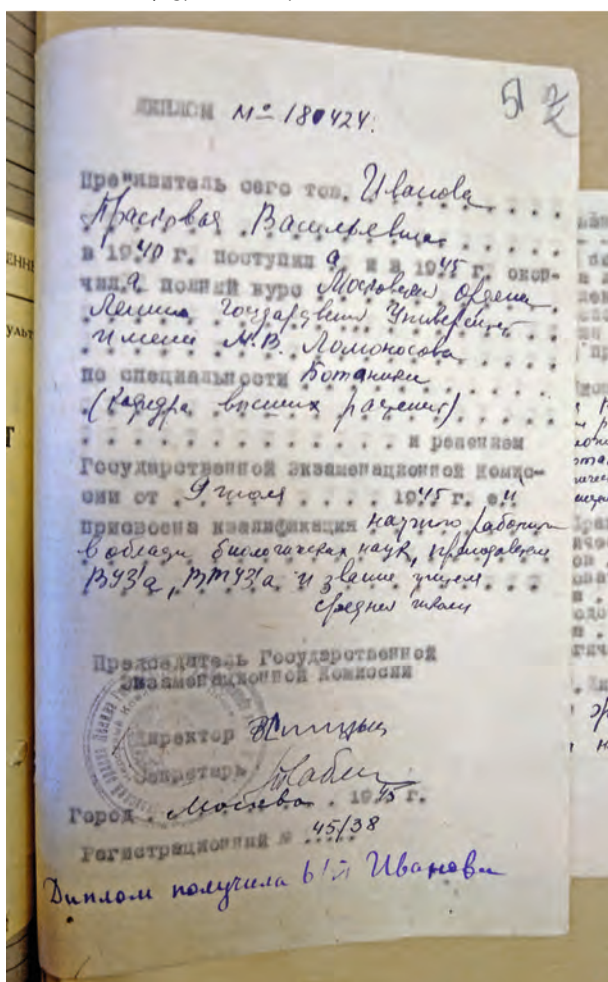 51
ДИПЛОМ № 180424.
Пред'явитель сего тов. Иванова
Прасковья Васильевна
в 1940 г. поступил а и в 1945 г. окон-
чил а полный курс Московский Ордена
Ленина Государствен Университ
имени М.В. Ломоносова
по специальности Ботаника
(кафедра высших растений)
и решением
Государственной Экзаменационной Комис-
сии от 9 июля 1945 г. ей
присвоена квалификация научного работн
в области биологических наук, преподавателя
ВУЗ'а, ВТУЗ'а и звание учителя
средней школы
Председатель Государственной
Экзаменационной Комиссии
Директор
Секретарь
Город Москва 1945 г.
Регистрационный № 45/38
Диплом получила Иванова